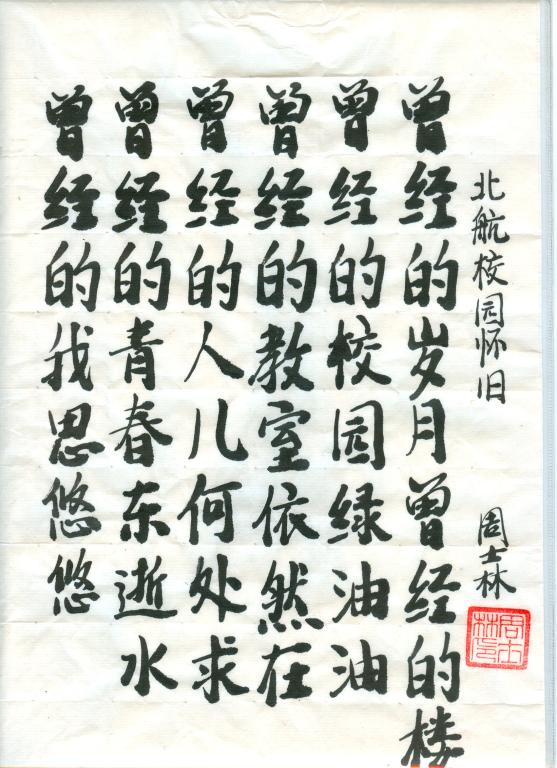 北航校园怀旧 周士林
周士林印
曾经的岁月曾经的楼
曾经的校园绿油油
曾经的教室依然在
曾经的人儿何处求
曾经的青春东逝水
曾经的我思悠悠